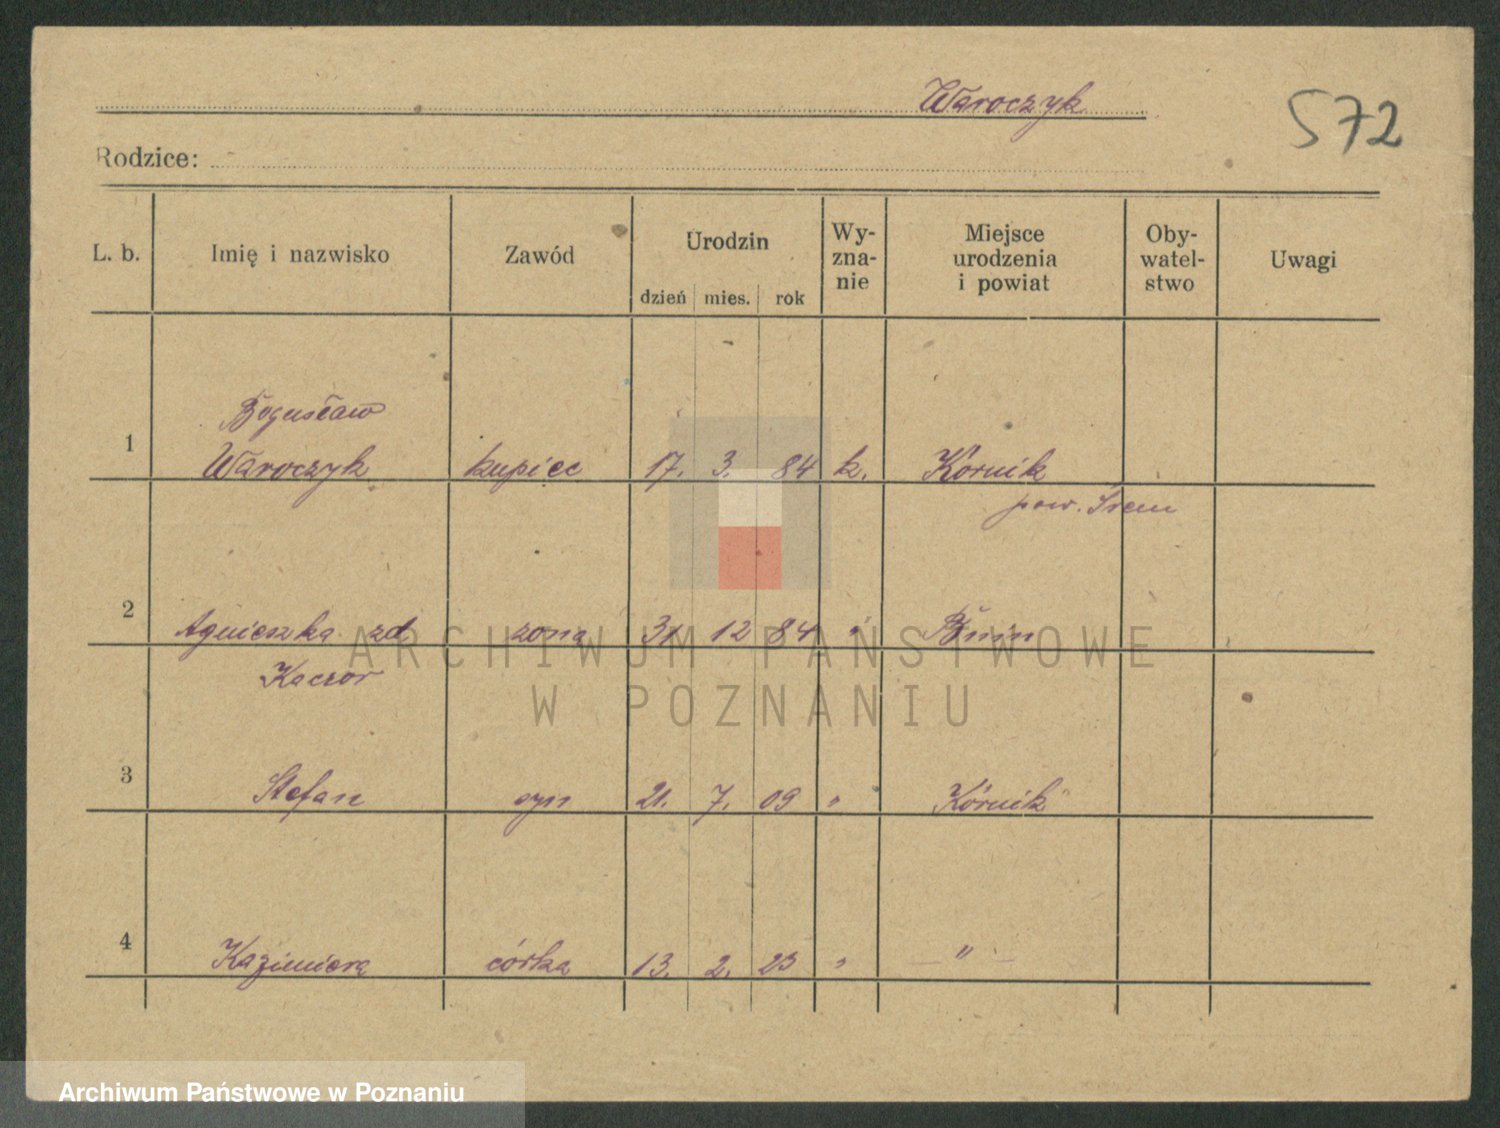 Waroczyk
572
Rodzice:
L. b. Imię i nazwisko Zawód Urodzin dzień mies. rok Wy-zna-nie Miejsce urodzenia i powiat Oby-watel-stwo Uwagi
Bogusław
1 Waroczyk kupiec 17. 3. 84 k. Kórnik
pow. Śrem
2 Agnieszka zd żona 31 12 84 " Bnin
Kaczor
3 Stefan syn 21. 7. 09 " Kórnik
4 Kazimiera córka 13. 2. 23 " — " —
ARCHIWUM PAŃSTWOWE
W POZNANIU
Archiwum Państwowe w Poznaniu